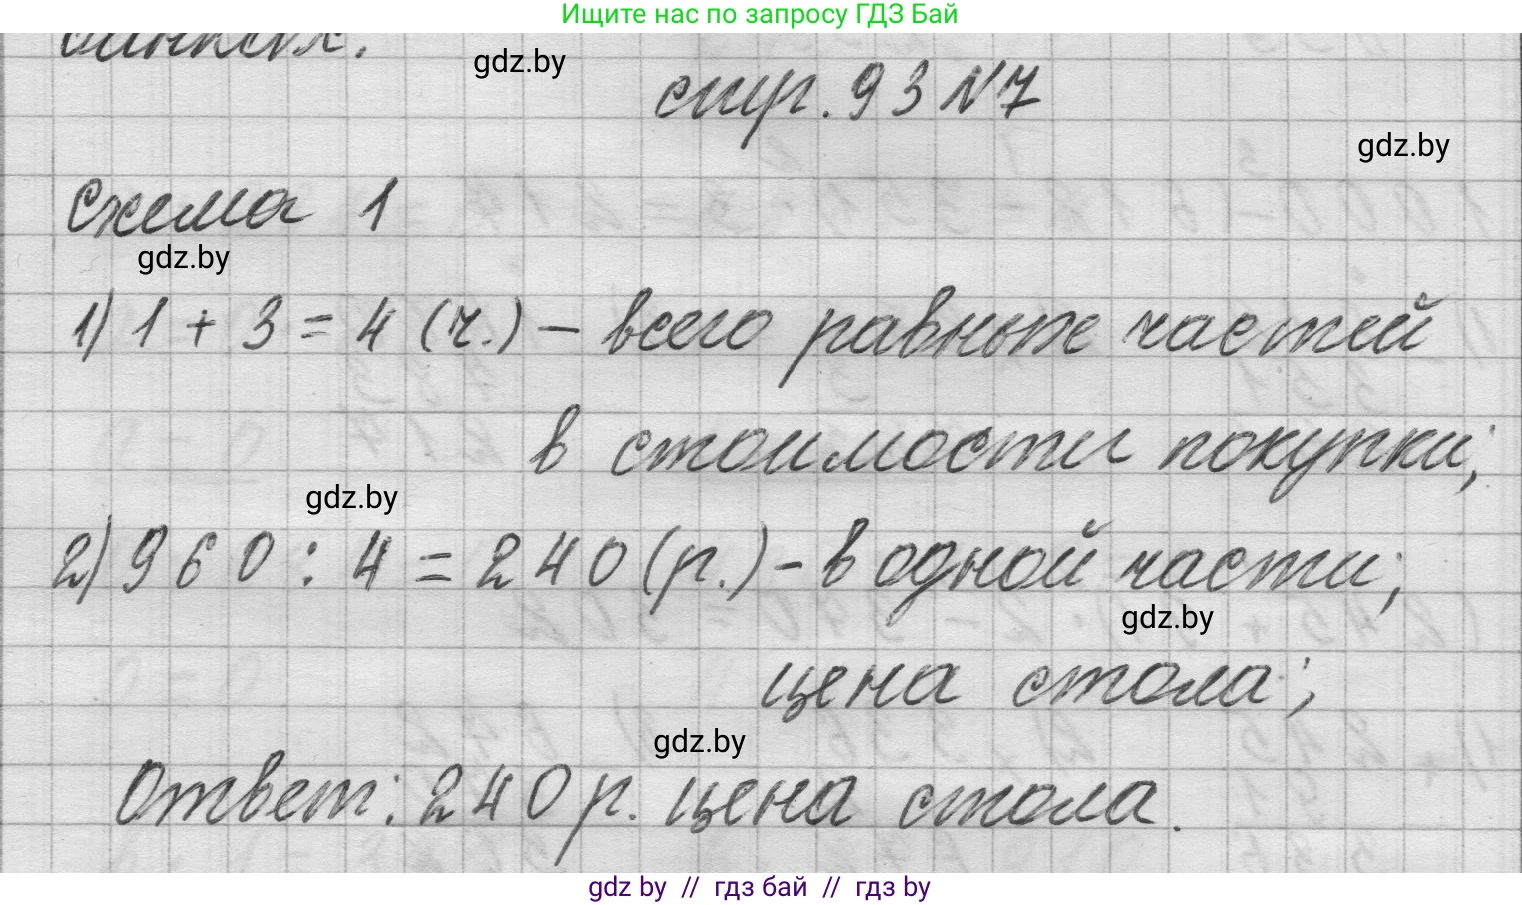 Ищите нас по запросу ГДЗ Бай
gdz.by
стр. 93 №7
gdz.by
Схема 1
gdz.by
1) 1 + 3 = 4 (ч.) – всего равных частей
в стоимости покупки;
gdz.by
2) 960 : 4 = 240 (р.) – в одной части;
gdz.by
цена стола;
gdz.by
Ответ: 240 р. цена стола.
gdz by // гдз бай // гдз by